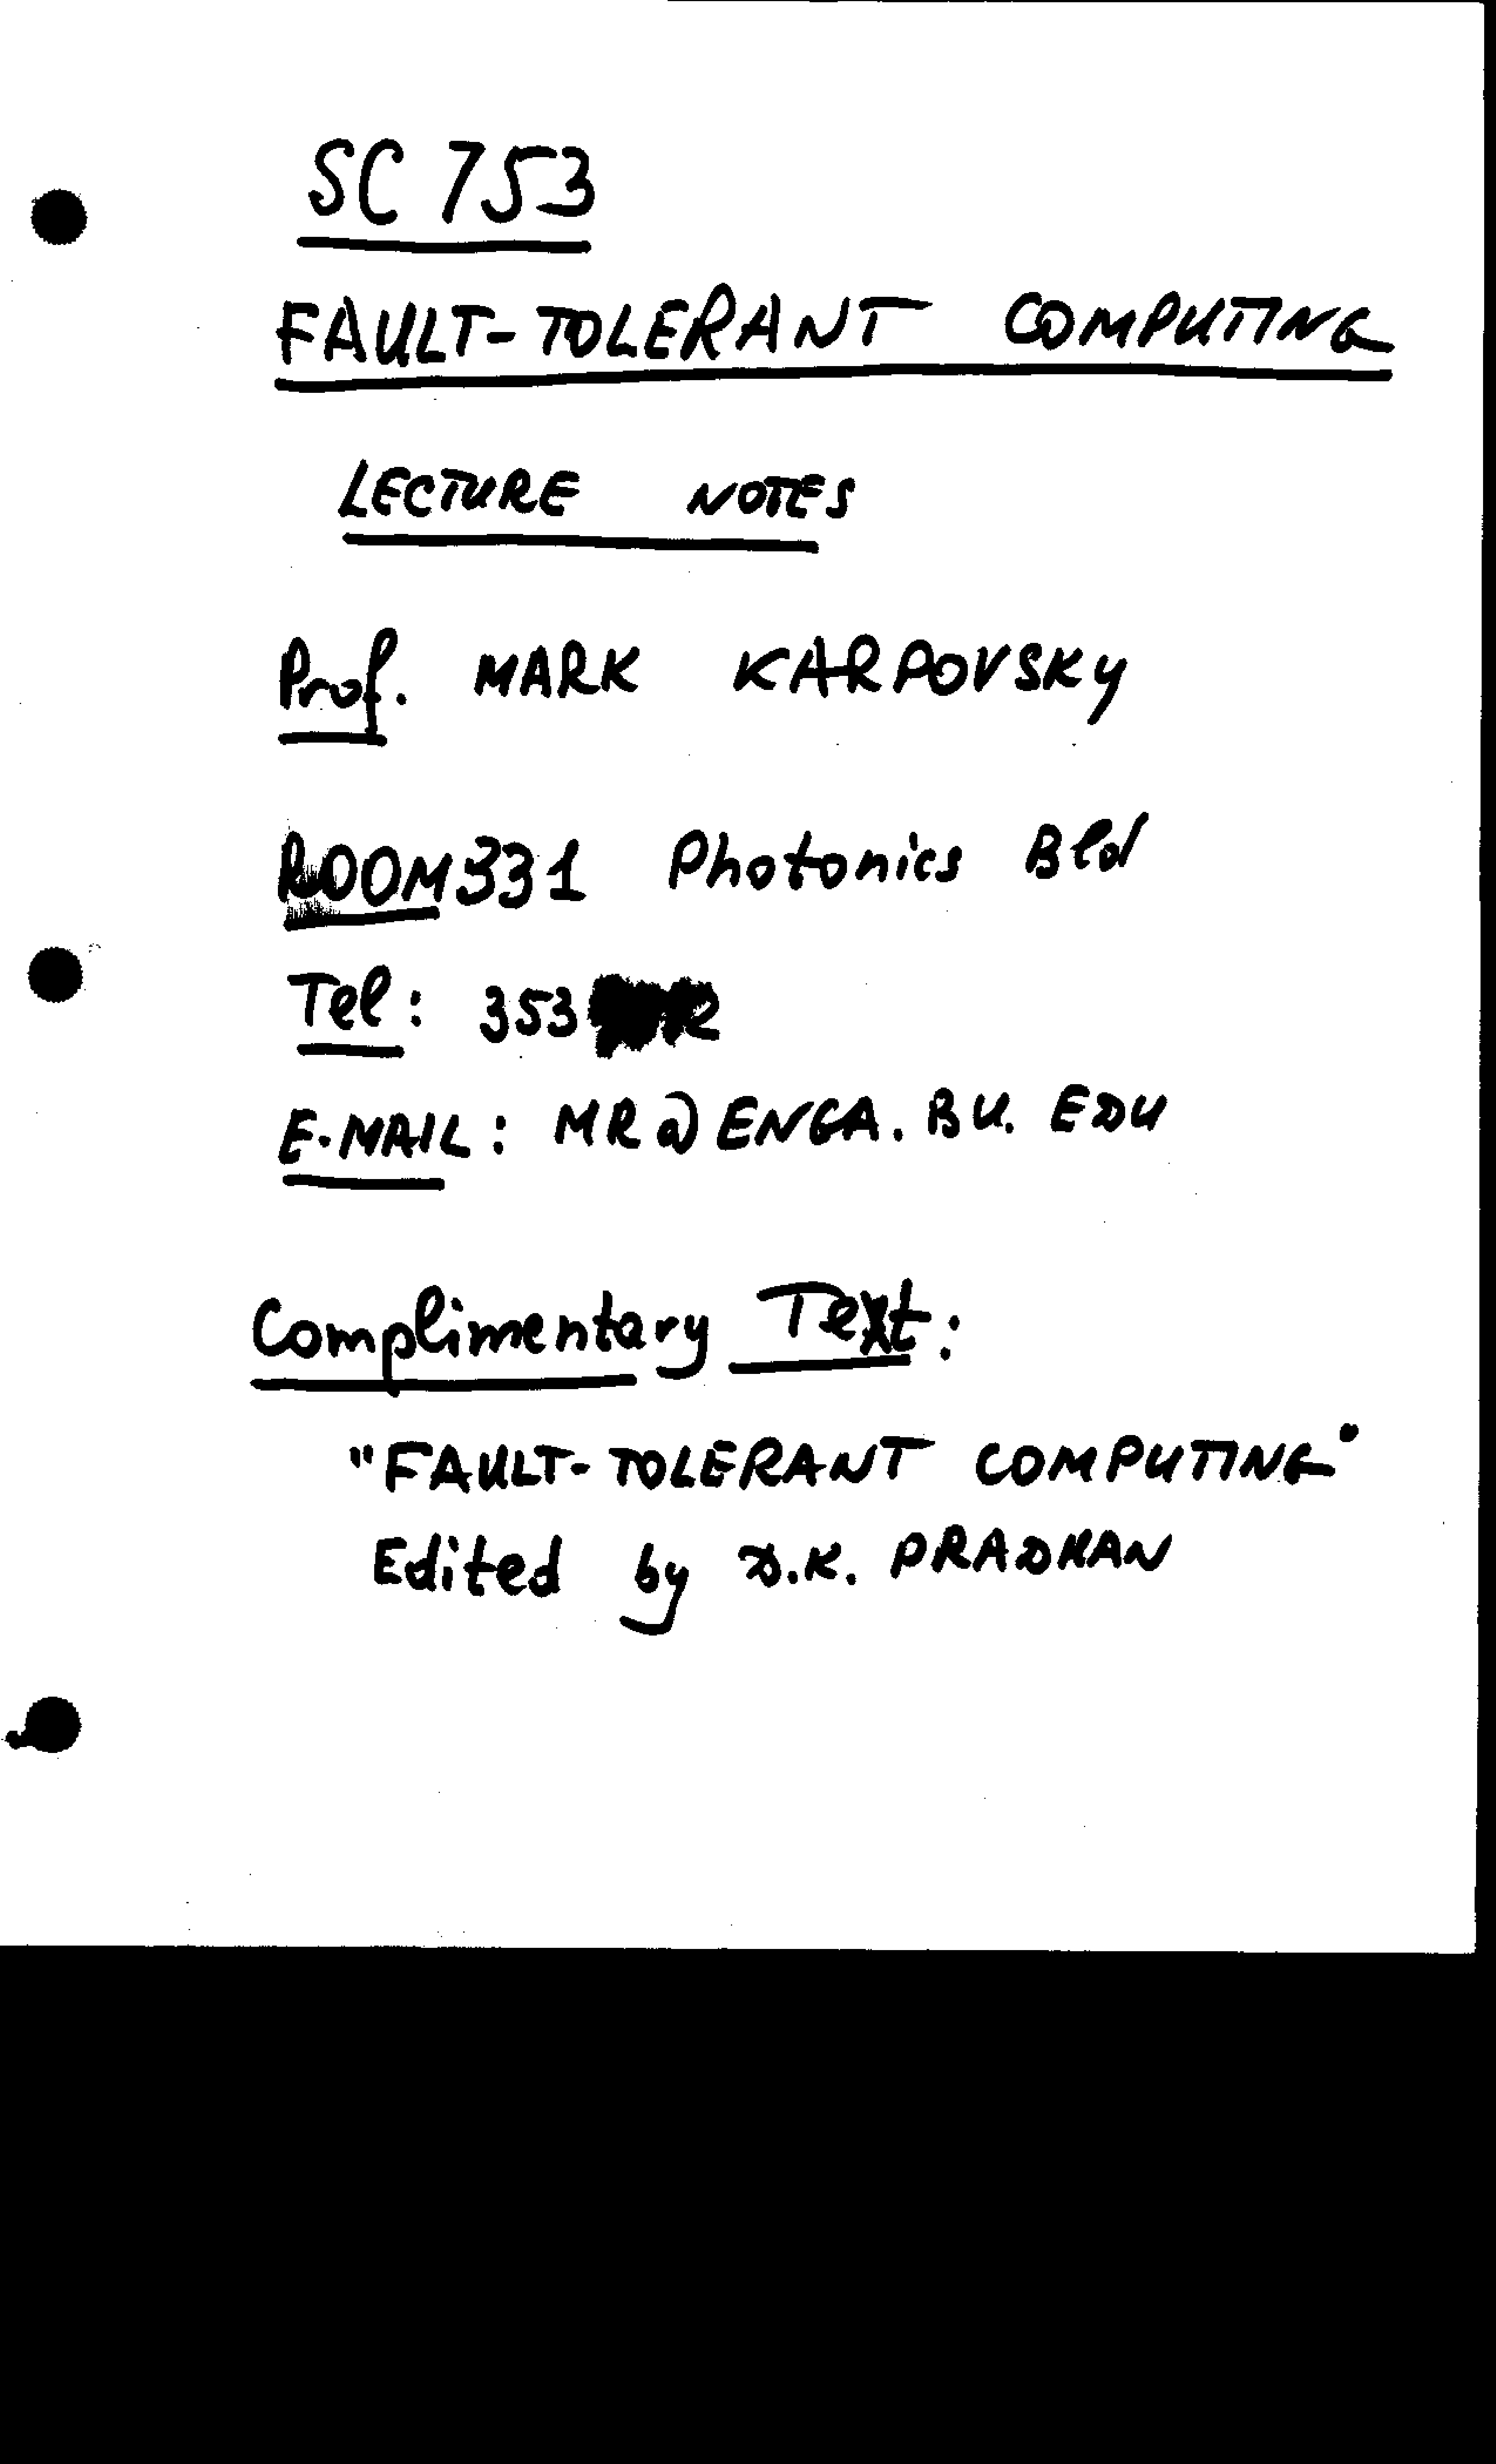 SC 753
FAULT-TOLERANT COMPUTING
LECTURE NOTES
Prof. MARK KARPOVSKY
ROOM 331 Photonics Bld
Tel: 353
E-MAIL: MR@ENGA.BU.EDU
Complimentary Text:
"FAULT-TOLERANT COMPUTING"
Edited by D.K. PRADHAN